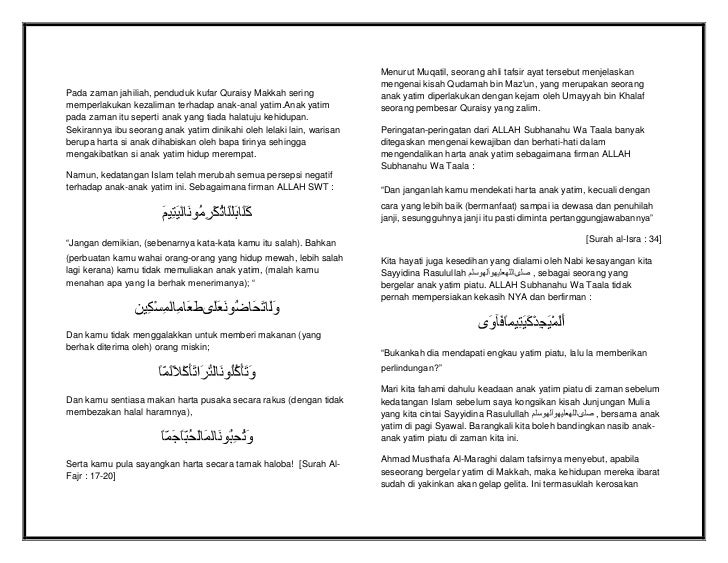 Pada zaman jahiliah, penduduk kufar Quraisy Makkah sering
memperlakukan kezaliman terhadap anak-anal yatim.Anak yatim
pada zaman itu seperti anak yang tiada halatuju kehidupan.
Sekirannya ibu seorang anak yatim dinikahi oleh lelaki lain, warisan
berupa harta si anak dihabiskan oleh bapa tirinya sehingga
mengakibatkan si anak yatim hidup merempat.
Namun, kedatangan Islam telah merubah semua persepsi negatif
terhadap anak-anak yatim ini. Sebagaimana firman ALLAH SWT :
كَلَّابَللَّاتُكْرِمُونَالْيَتِيمَ
“Jangan demikian, (sebenarnya kata-kata kamu itu salah). Bahkan
(perbuatan kamu wahai orang-orang yang hidup mewah, lebih salah
lagi kerana) kamu tidak memuliakan anak yatim, (malah kamu
menahan apa yang Ia berhak menerimanya); “
وَلَاتَحَاضُّونَعَلَىٰطَعَامِالْمِسْكِينِ
Dan kamu tidak menggalakkan untuk memberi makanan (yang
berhak diterima oleh) orang miskin;
وَتَأْكُلُونَالتُّرَاثَأَكْلًالَّمًّا
Dan kamu sentiasa makan harta pusaka secara rakus (dengan tidak
membezakan halal haramnya),
وَتُحِبُّونَالْمَالَحُبًّاجَمًّا
Serta kamu pula sayangkan harta secara tamak haloba! [Surah Al-
Fajr : 17-20]
Menurut Muqatil, seorang ahli tafsir ayat tersebut menjelaskan
mengenai kisah Qudamah bin Maz'un, yang merupakan seorang
anak yatim diperlakukan dengan kejam oleh Umayyah bin Khalaf
seorang pembesar Quraisy yang zalim.
Peringatan-peringatan dari ALLAH Subhanahu Wa Taala banyak
ditegaskan mengenai kewajiban dan berhati-hati dalam
mengendalikan harta anak yatim sebagaimana firman ALLAH
Subhanahu Wa Taala :
“Dan janganlah kamu mendekati harta anak yatim, kecuali dengan
cara yang lebih baik (bermanfaat) sampai ia dewasa dan penuhilah
janji, sesungguhnya janji itu pasti diminta pertanggungjawabannya”
[Surah al-Isra : 34]
Kita hayati juga kesedihan yang dialami oleh Nabi kesayangan kita
Sayyidina Rasulullah صلىاللهعليهوآلهوسلم , sebagai seorang yang
bergelar anak yatim piatu. ALLAH Subhanahu Wa Taala tidak
pernah mempersiakan kekasih NYA dan berfirman :
أَلَمْيَجِدْكَيَتِيمًافَآوَىٰ
“Bukankah dia mendapati engkau yatim piatu, lalu Ia memberikan
perlindungan?”
Mari kita fahami dahulu keadaan anak yatim di zaman sebelum
kedatangan Islam sebelum saya kongsikan kisah Junjungan Mulia
yang kita cintai Sayyidina Rasulullah صلىاللهعليهوآلهوسلم , bersama anak
yatim di pagi Syawal. Barangkali kita boleh bandingkan nasib anak-
anak yatim piatu di zaman kita ini.
Ahmad Musthafa Al-Maraghi dalam tafsirnya menyebut, apabila
seseorang bergelar yatim di Makkah, maka kehidupan mereka ibarat
sudah di yakinkan akan gelap gelita. Ini termasuklah kerosakan